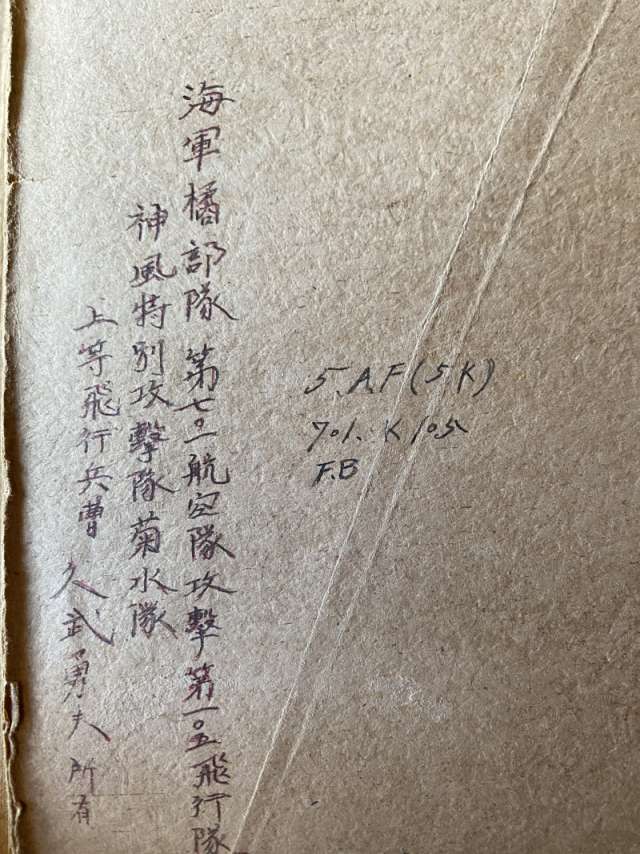 海軍橘部隊第七〇一航空隊攻撃第一〇五飛行隊
神風特別攻撃隊菊水隊
上等飛行兵曹 久武勇夫所有
5.A.F(5K)
701.K 105
F.B